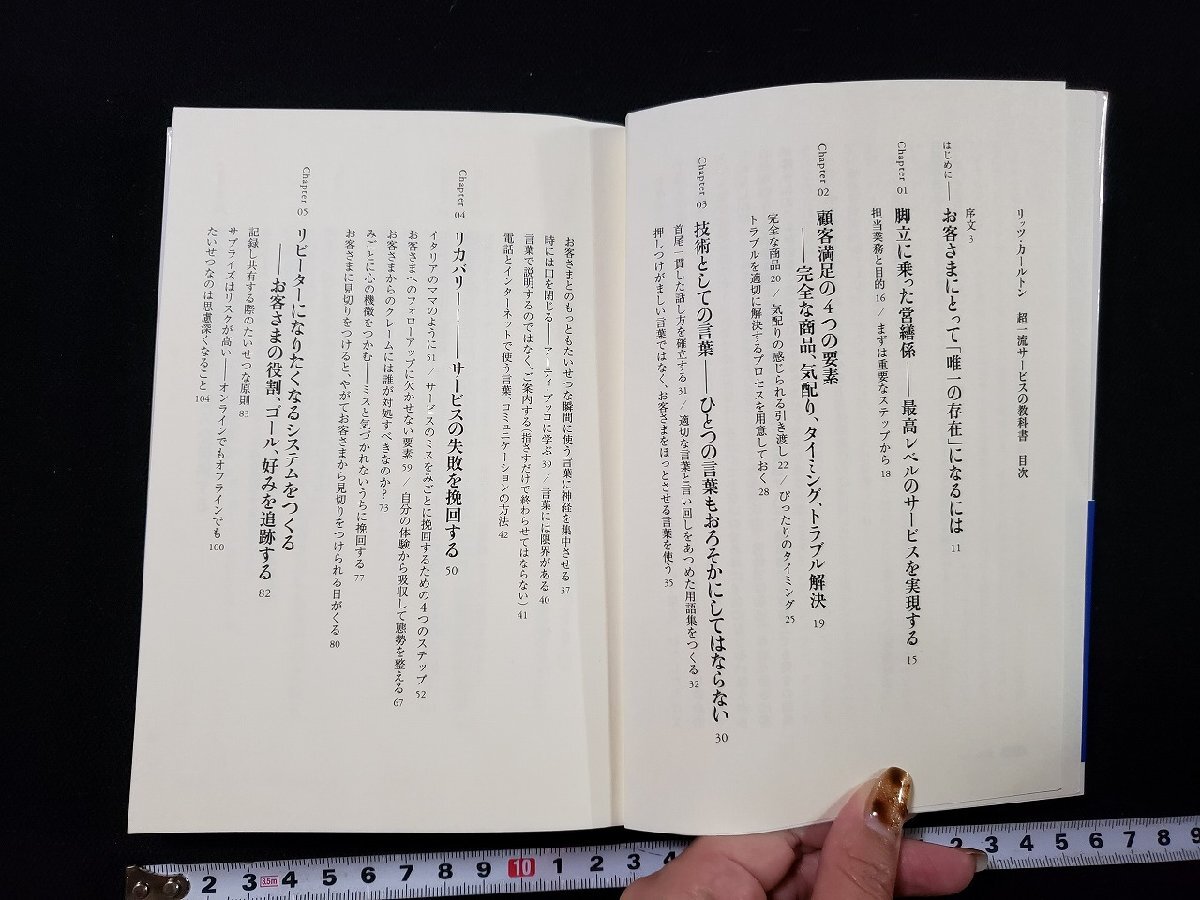 リッツ・カールトン 超一流サービスの教科書 目次
序文 3
はじめに――お客さまにとって「唯一の存在」になるには 11
Chapter 01 脚立に乗った営繕係――最高レベルのサービスを実現する 15
担当業務と目的 16／まずは重要なステップから 18
Chapter 02 顧客満足の4つの要素
――完全な商品、気配り、タイミング、トラブル解決 19
完全な商品 20／気配りの感じられる引き渡し 22／ぴったりのタイミング 25
トラブルを適切に解決するプロセスを用意しておく 28
Chapter 03 技術としての言葉――ひとつの言葉もおろそかにしてはならない 30
首尾一貫した話し方を確立する 31／適切な言葉と言い回しをあつめた用語集をつくる 32
押しつけがましい言葉ではなく、お客さまをほっとさせる言葉を使う 35
お客さまとのもっともたいせつな瞬間に使う言葉に神経を集中させる 37
時には口を閉じる――アーティ・ブッコに学ぶ 39／言葉には限界がある 40
言葉で説明するのではなく、ご案内する(指さすだけで終わらせてはならない) 41
電話とインターネットで使う言葉、コミュニケーションの方法 42
Chapter 04 リカバリー――サービスの失敗を挽回する 50
イタリアのママのように 51／サービスのミスをみごとに挽回するための4つのステップ 52
お客さまへのフォローアップに欠かせない要素 59／自分の体験から吸収して態勢を整える 67
お客さまからのクレームには誰が対処すべきなのか? 73
みごとに心の機微をつかむ――ミスと気づかれないうちに挽回する 77
お客さまに見切りをつけると、やがてお客さまから見切りをつけられる日がくる 80
Chapter 05 リピーターになりたくなるシステムをつくる
――お客さまの役割、ゴール、好みを追跡する 82
記録し共有する際のたいせつな原則
サプライズはリスクが高い――オンラインでもオフラインでも 100
たいせつなのは思慮深くなること 104
2 3 3.5m 4 5 6 7 8 9 10 1 2 3 4
2 3 4 5 6 7 8 9